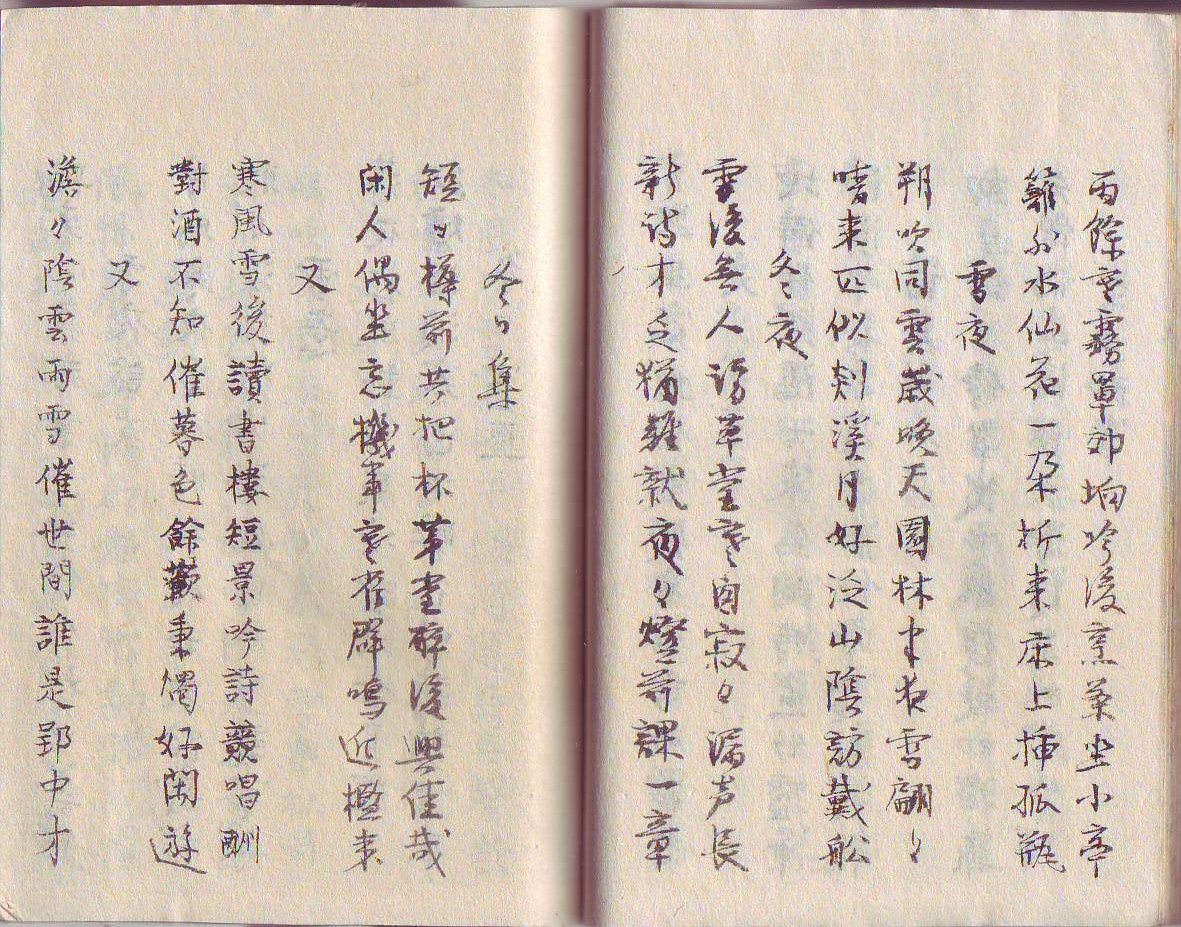 雨餘寒霧罩郊坰吟後烹茶坐小亭
籬外水仙花一朶折来床上挿孤瓶
雪夜
朔吹同雲歳晩天園林半夜雪翩々
晴来匹似剡溪月好泛山陰訪戴舩
冬夜
雪後無人訪草堂寒自寂々漏声長
新詩才乏猶難就夜々燈前課一章
冬日集
短日樽前共把杯草堂醉後興佳哉
閑人偶坐忘機事寒雀群鳴近檻来
又
寒風雪後讀書樓短景吟詩競唱酬
對酒不知催暮色餘歡秉燭好閑遊
又
澹々陰雲雨雪催世間誰是郢中才